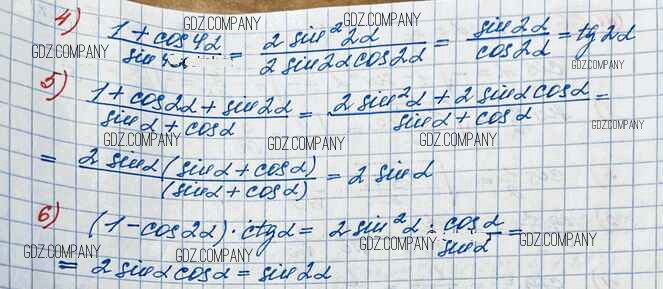 4) (1 + cos 4α)/(sin 4α) = (2 sin² 2α)/(2 sin 2α cos 2α) = (sin 2α)/(cos 2α) = tg 2α
GDZ.COMPANY GDZ.COMPANY GDZ.COMPANY GDZ.COMPANY GDZ.COMPANY
5) (1 + cos 2α + sin 2α)/(sin α + cos α) = (2 sin² α + 2 sin α cos α)/(sin α + cos α) =
GDZ.COMPANY GDZ.COMPANY GDZ.COMPANY GDZ.COMPANY
= (2 sin α (sin α + cos α))/((sin α + cos α)) = 2 sin α
GDZ.COMPANY GDZ.COMPANY
6) (1 - cos 2α) · ctg α = 2 sin² α · (cos α)/(sin α) =
GDZ.COMPANY GDZ.COMPANY GDZ.COMPANY GDZ.COMPANY
= 2 sin α cos α = sin 2α